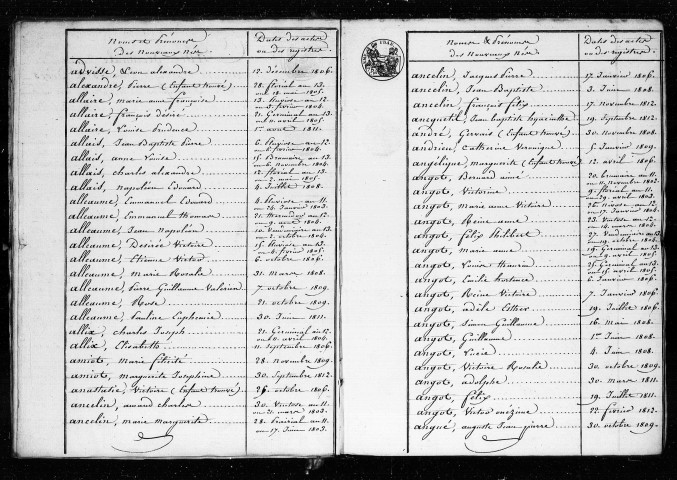 Noms et Prénoms
des Nouveaux Nés.
Dates des actes
ou des registres.
advisse, Léon alexandre 12. Décembre 1806.
alexandre, Pierre (Enfant trouvé) 28. floréal an 13.
ou 18. mai 1805.
allaire, marie anne françoise 13. Pluviose an 12
ou 3. février 1804.
allaire, françois Désiré 21. Germinal an 13
ou 11 avril 1805.
allaire, Louise Prudence 1er avril 1811.
allais, Jean Baptiste Pierre Pluviose an 12
février 1804.
allais, anne Louise 15. Brumaire an 13
ou 6. novembre 1804.
allais, charles alexandre 12. floréal an 13
ou 2. mai 1805.
allais, napoléon Edouard 4. Juillet 1808.
alleaume, Emmanuel Edouard 4. Pluviose an 12.
ou 24. Janvier 1804.
alleaume, Emmanuel thomas
alleaume, Jean napoléon 10. Vendémiaire an 13
ou 2. octobre 1804.
alleaume, Désirée Victoire 15. Pluviose an 13
ou 4. février 1805.
alleaume, Etienne Victor 6. octobre 1806.
alleaume, marie Rosalie 31. mars 1808.
alleaume, Pierre Guillaume Valérien 7. octobre 1809.
alleaume, Rose 21. octobre 1809.
alleaume, Pauline Euphémie 30. Juin 1811.
allix, charles Joseph 21. Germinal an 12
ou 11. avril 1804.
allix, Elisabeth 11. Septembre 1806.
amiot, marie félicité 28. novembre 1809.
amiot, marguerite Joséphine 30. Septembre 1812.
anastasie, Victoire (Enfant trouvé) 26. octobre 1806.
ancelin, amand charles 30. Ventose an 11
ou 21. mars 1803.
ancelin, marie marguerite 28. Prairial an 11
ou 17. Juin 1803.
Noms & Prénoms
des Nouveaux Nés.
Dates des actes
ou des registres.
ancelin, Jacques Pierre 17. Janvier 1806.
ancelin, Jean Baptiste 3. Juin 1808.
ancelin, françois félix 17. novembre 1812.
ancquetil, Jean Baptiste hyacinthe 19. Septembre 1812.
andré, Gervais (Enfant trouvé) 30. novembre 1808.
andrieu, Catherine Véronique 5. Janvier 1809.
angélique, marguerite (Enfant trouvé) 12. avril 1806.
angot, Bernard aimé 20. brumaire an 11
ou 11. novembre 1802.
angot, Victorine 9. floréal an 11.
ou 29. avril 1803.
angot, marie anne Victoire 26. nivose an 12
ou 17. Janvier 1804.
angot, Reine aimée 23. Ventose an 12
ou 14. mars 1804.
angot, félix Philibert 27. Vendémiaire an 13
ou 19. octobre 1804.
angot, marie anne 19. Germinal an 13
ou 9. avril 1805.
angot, Louise 25. Germinal an 13
ou 15. avril 1805.
angot, Emilie hortence 6. Janvier 1806.
angot, Reine Victoire 7. Janvier 1806.
angot, adèle Esther 19. Juillet 1806.
angot, Simon Guillaume 16. mai 1808.
angot, Guillaume 1er Juin 1808.
angot, Lucie 4. Juin 1808.
angot, Victoire Rosalie 30. octobre 1809.
angot, adolphe 30. mars 1811.
angot, félix 19. Juillet 1811.
angot, Victor onézime 22. février 1812.
angué, auguste Jean pierre 30. octobre 1809.